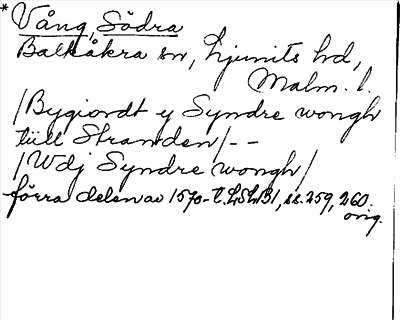 * Vång, Södra
Balkåkra sn, Ljunits hd,
Malm. l.
/Bygiordt y Syndre wongh
tiill Stranden/--
/Wdj Syndre wongh/
förra delen av 1570-t. LSLB1, ss. 259, 260.
orig.